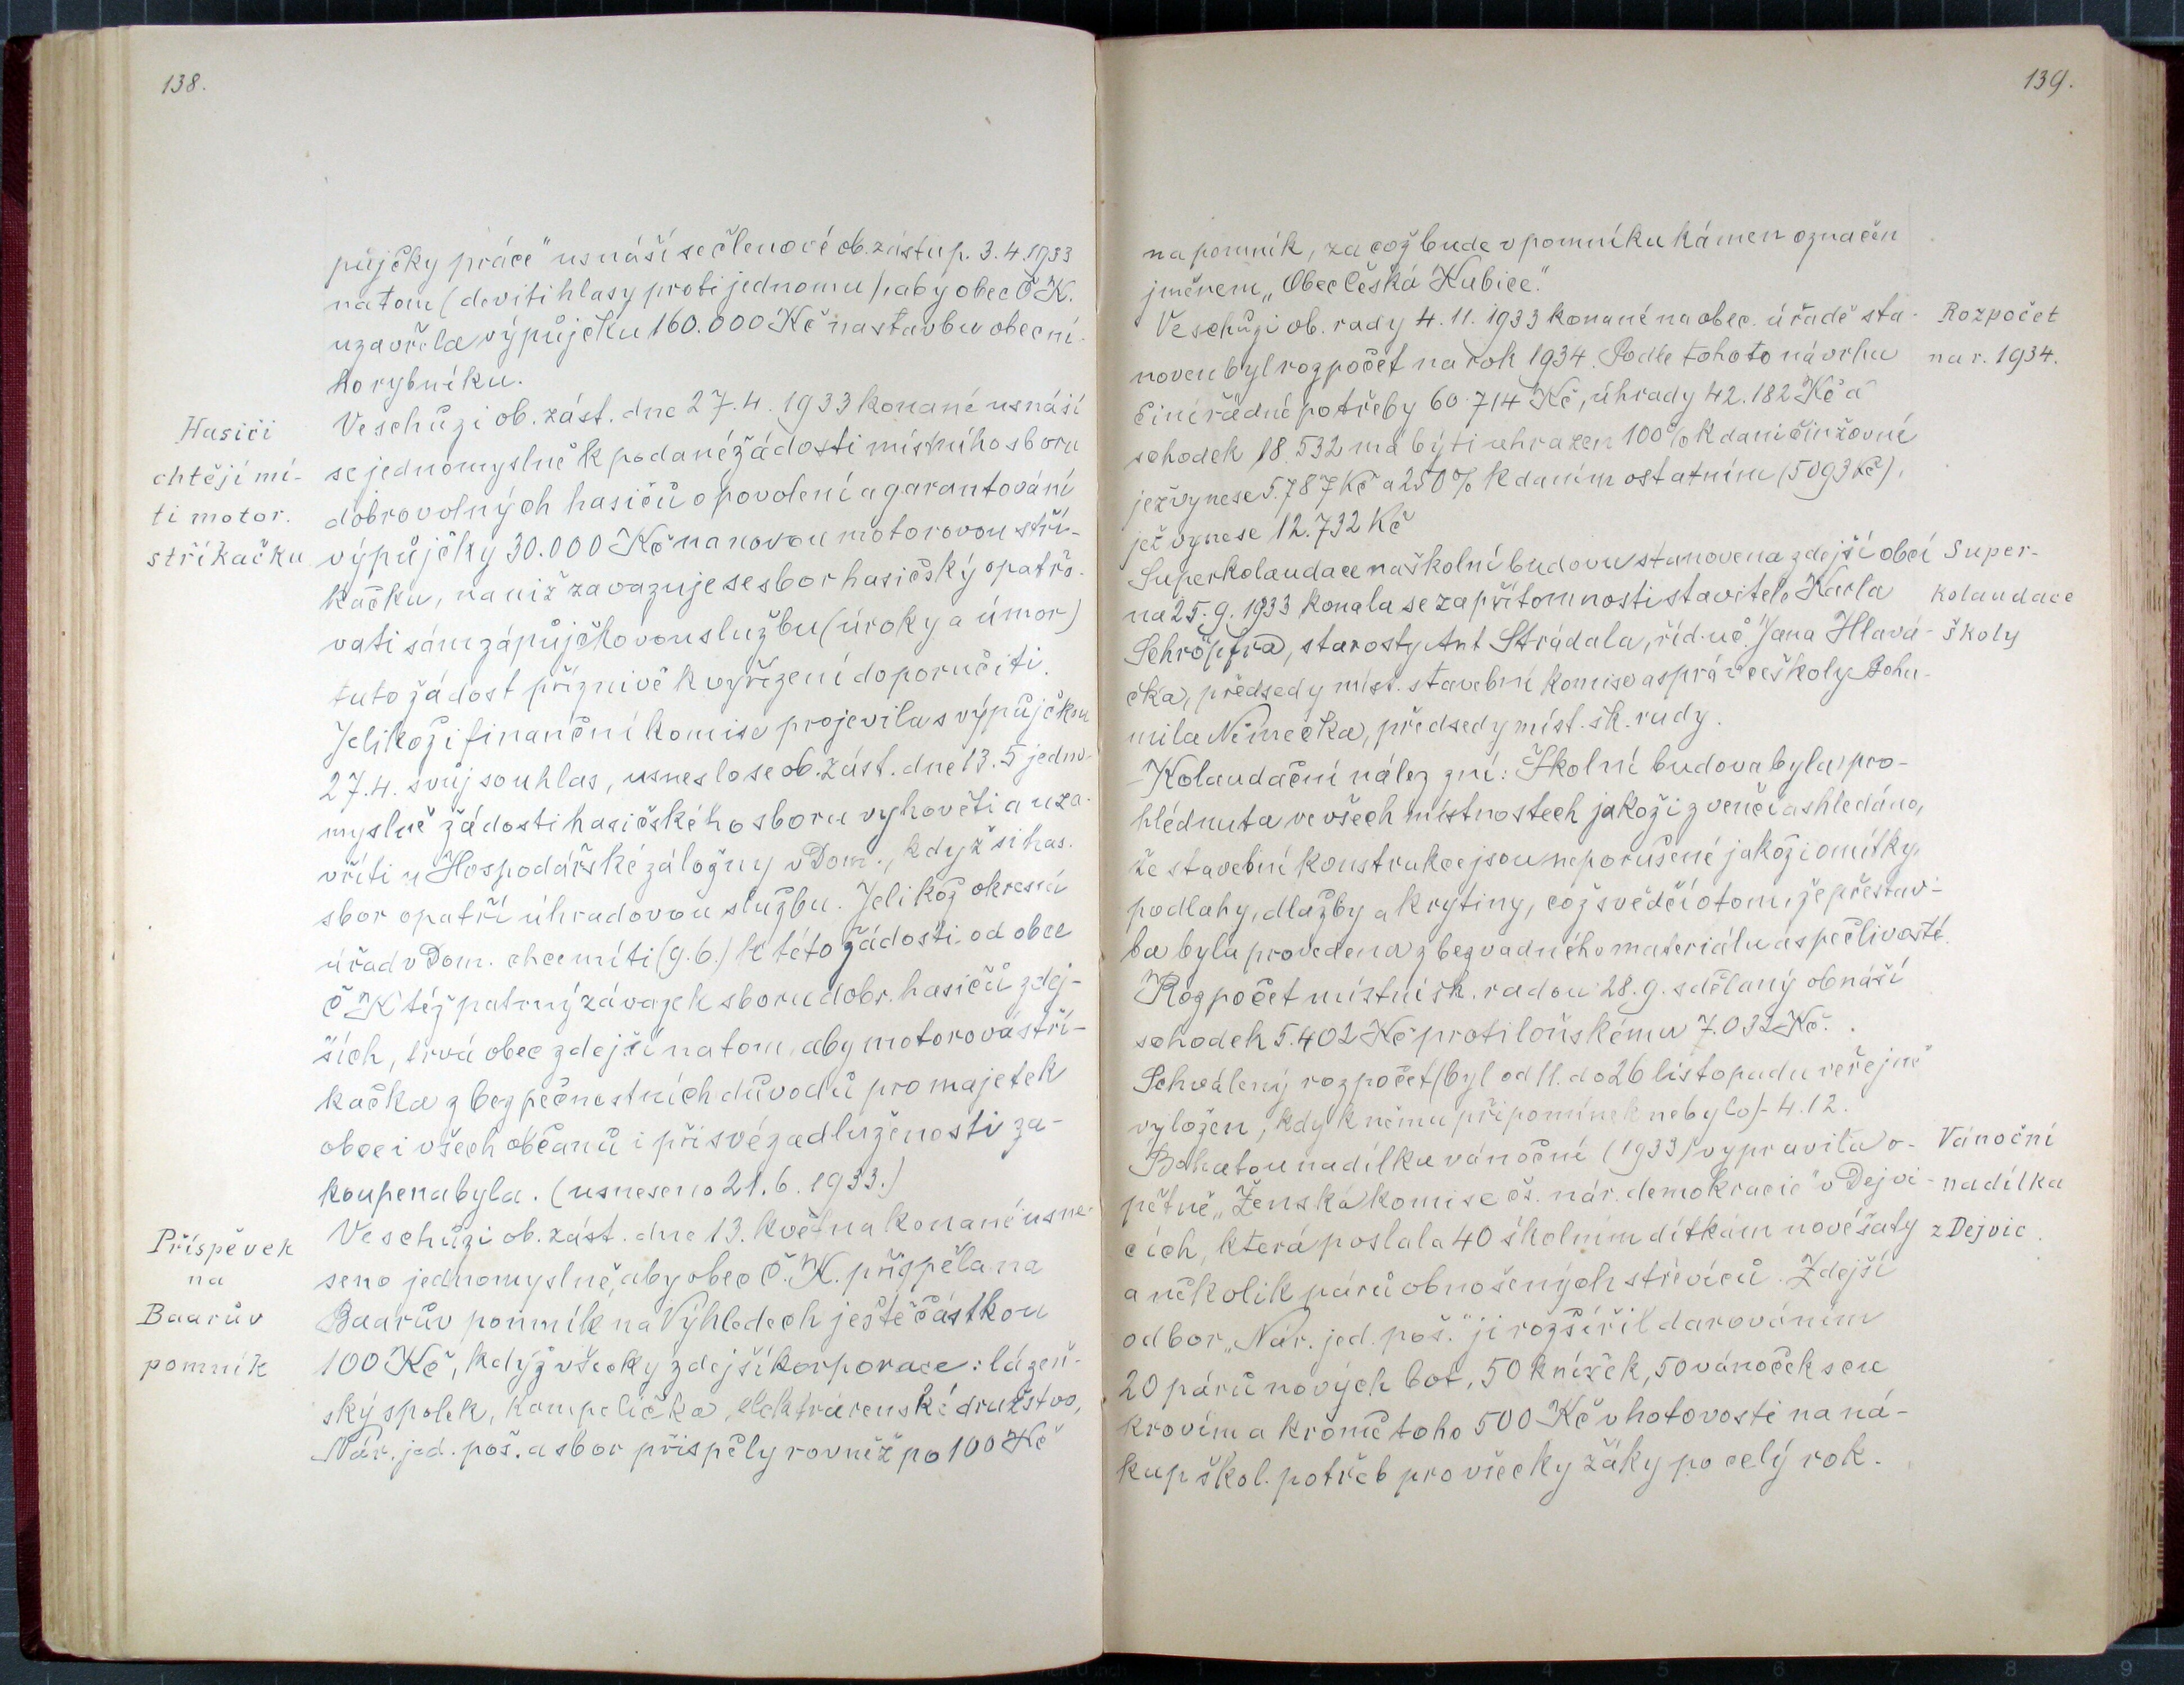 138.
půjčky práce" usnáší se členové ob. zástup. 3.4.1933
na tom (devíti hlasy proti jednomu) aby obec Č K.
uzavřela výpůjčku 160.000 Kč na stavbu obecní-
ho rybníku.
Hasiči
chtějí mí-
ti motor.
stříkačku
Ve schůzi ob. zást. dne 27.4. 1933 konané usnáší
se jednomyslně k podané žádosti místního sboru
dobrovolných hasičů o povolení a garantování
výpůjčky 30.000 Kč na novou motorovou stří-
kačku, na niž zavazuje se sbor hasičský opatřo-
vati sám zápůjčkovou službu (úroky a úmor)
tuto žádost příznivě k vyřízení doporučiti.
Jelikož i finanční komise projevila s výpůjčkou
27.4. svůj souhlas, usneslo se ob. zást. dne 13.5 jedno-
myslně žádosti hasičského sboru vyhověti a uza-
vříti u Hospodářské záložny v Dom., když si has.
sbor opatří úhradovou službu. Jelikož okresní
úřad v Dom. chce míti (9.6.) k této žádosti od obce
Č K též patrný závazek sboru dobr. hasičů zdej-
ších, trvá obec zdejší na tom, aby motorová stří-
kačka z bezpečnostních důvodů pro majetek
obce i všech občanů i při své zadluženosti za-
koupena byla. (usneseno 21.6.1933.)
Příspěvek
na
Baarův
pomník
Ve schůzi ob. zást. dne 13. května konané usne-
seno jednomyslně, aby obec Č. K. přispěla na
Baarův pomník na Výhledech ještě částkou
100 Kč, když všecky zdejší korporace: lázeň-
ský spolek, kampelička, elektrárenské družstvo,
Nár. jed. poš. a sbor přispěly rovněž po 100 Kč
139.
na pomník, za což bude v pomníku kámen označen
jménem „Obec Česká Kubice."
Ve schůzi ob. rady 4.11.1933 konané na obec. úřadě sta-
noven byl rozpočet na rok 1934. Podle tohoto návrhu
činí řádné potřeby 60.714 Kč, úhrady 42.182 Kč a
schodek 18.532 má býti uhrazen 100% k dani činžovní
jež vynese 5.787 Kč a 250% k daním ostatním (5093 Kč),
jež vynese 12.732 Kč
Rozpočet
na r. 1934.
Superkolaudace na školní budovu stanovena zdejší obcí
na 25.9.1933 konala se za přítomnosti stavitele Karla
Schröpfra, starosty Ant Strádala, říd. uč. Jana Hlavá-
čka, předsedy míst. stavební komise a správce školy Bohu-
mila Němečka, předsedy míst. šk. rady.
Super-
kolaudace
školy
Kolaudační nález zní: Školní budova byla pro-
hlédnuta ve všech místnostech jakož i zvenčí a shledáno,
že stavební konstrukce jsou neporušené jakož i omítky,
podlahy, dlažby a krytiny, což svědčí o tom, že přestav-
ba byla provedena z bezvadného materiálu a s pečlivostí.
Rozpočet místní šk. radou 28.9. sdělaný obnáší
schodek 5.402 Kč proti loňskému 7.032 Kč.
Schválený rozpočet (byl od 11. do 26 listopadu veřejně
vyložen, kdy k němu připomínek nebylo) - 4.12.
Bohatou nadílku vánoční (1933) vypravila o-
pětně „Ženská komise čs. nár. demokracie" v Dejvi-
cích, která poslala 40 školním dítkám nové šaty
a několik párů obnošených střevíců. Zdejší
odbor „Nár. jed. poš." ji rozšířil darováním
20 párů nových bot, 50 knížek, 50 vánoček s cu
krovím a kromě toho 500 Kč v hotovosti na ná-
kup škol. potřeb pro všecky žáky po celý rok.
Vánoční
nadílka
z Dejvic.
1 2 3 4 5 6 7 8 9